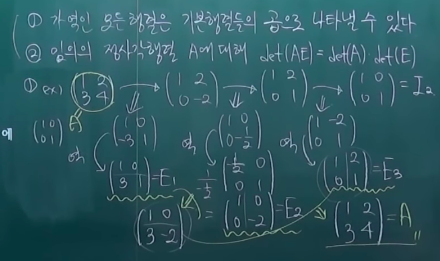 ① 가역인 모든행렬은 기본행렬들의 곱으로 나타낼 수 있다
② 임의의 정사각행렬 A에 대해 det(AE) = det(A)·det(E)
① ex) (1 2 / 3 4) → (1 2 / 0 -2) → (1 2 / 0 1) → (1 0 / 0 1) = I₂
에 (1 0 / 0 1) A (1 0 / -3 1) (1 0 / 0 -1/2) (1 -2 / 0 1)
역 (1 0 / 3 1) = E₁ 역 -1/2 (-1/2 0 / 0 1) 역 (1 2 / 0 1) = E₃
(1 0 / 3 -2) = (1 0 / 0 -2) = E₂ (1 2 / 3 4) = A